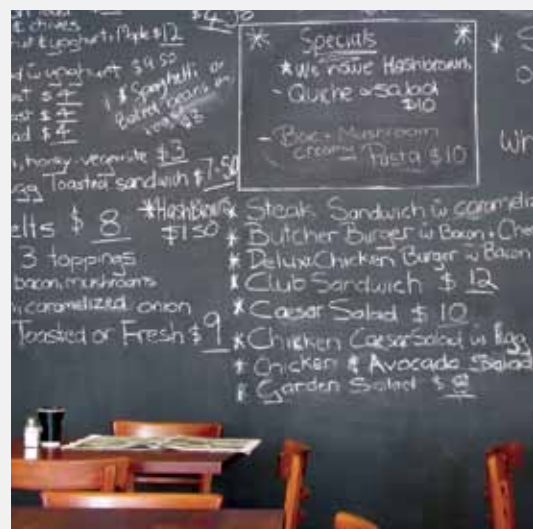 & chives
& yoghurt, Maple $12
yoghurt $9.50
$4
ast $4
ad $4
* Spaghetti or
Baked beans on
$3
, honey, vegemite $3
gg Toasted sandwich $7.50
elts $8
3 toppings
bacon, mushrooms
caramelized onion
Toasted or Fresh $9
*HashBrowns
$1.50
* Specials *
* We have Hashbrowns
- Quiche & salad
$10
- Bac + Mushroom
creamy Pasta $10
* S
Wh
* Steak Sandwich w carameliz
* Butcher Burger w Bacon + Chee
* Deluxe Chicken Burger w Bacon
* Club Sandwich $12
* Caesar Salad $10
* Chicken Caesar Salad w Egg
* Chicken & Avocado Salad
* Garden Salad $8